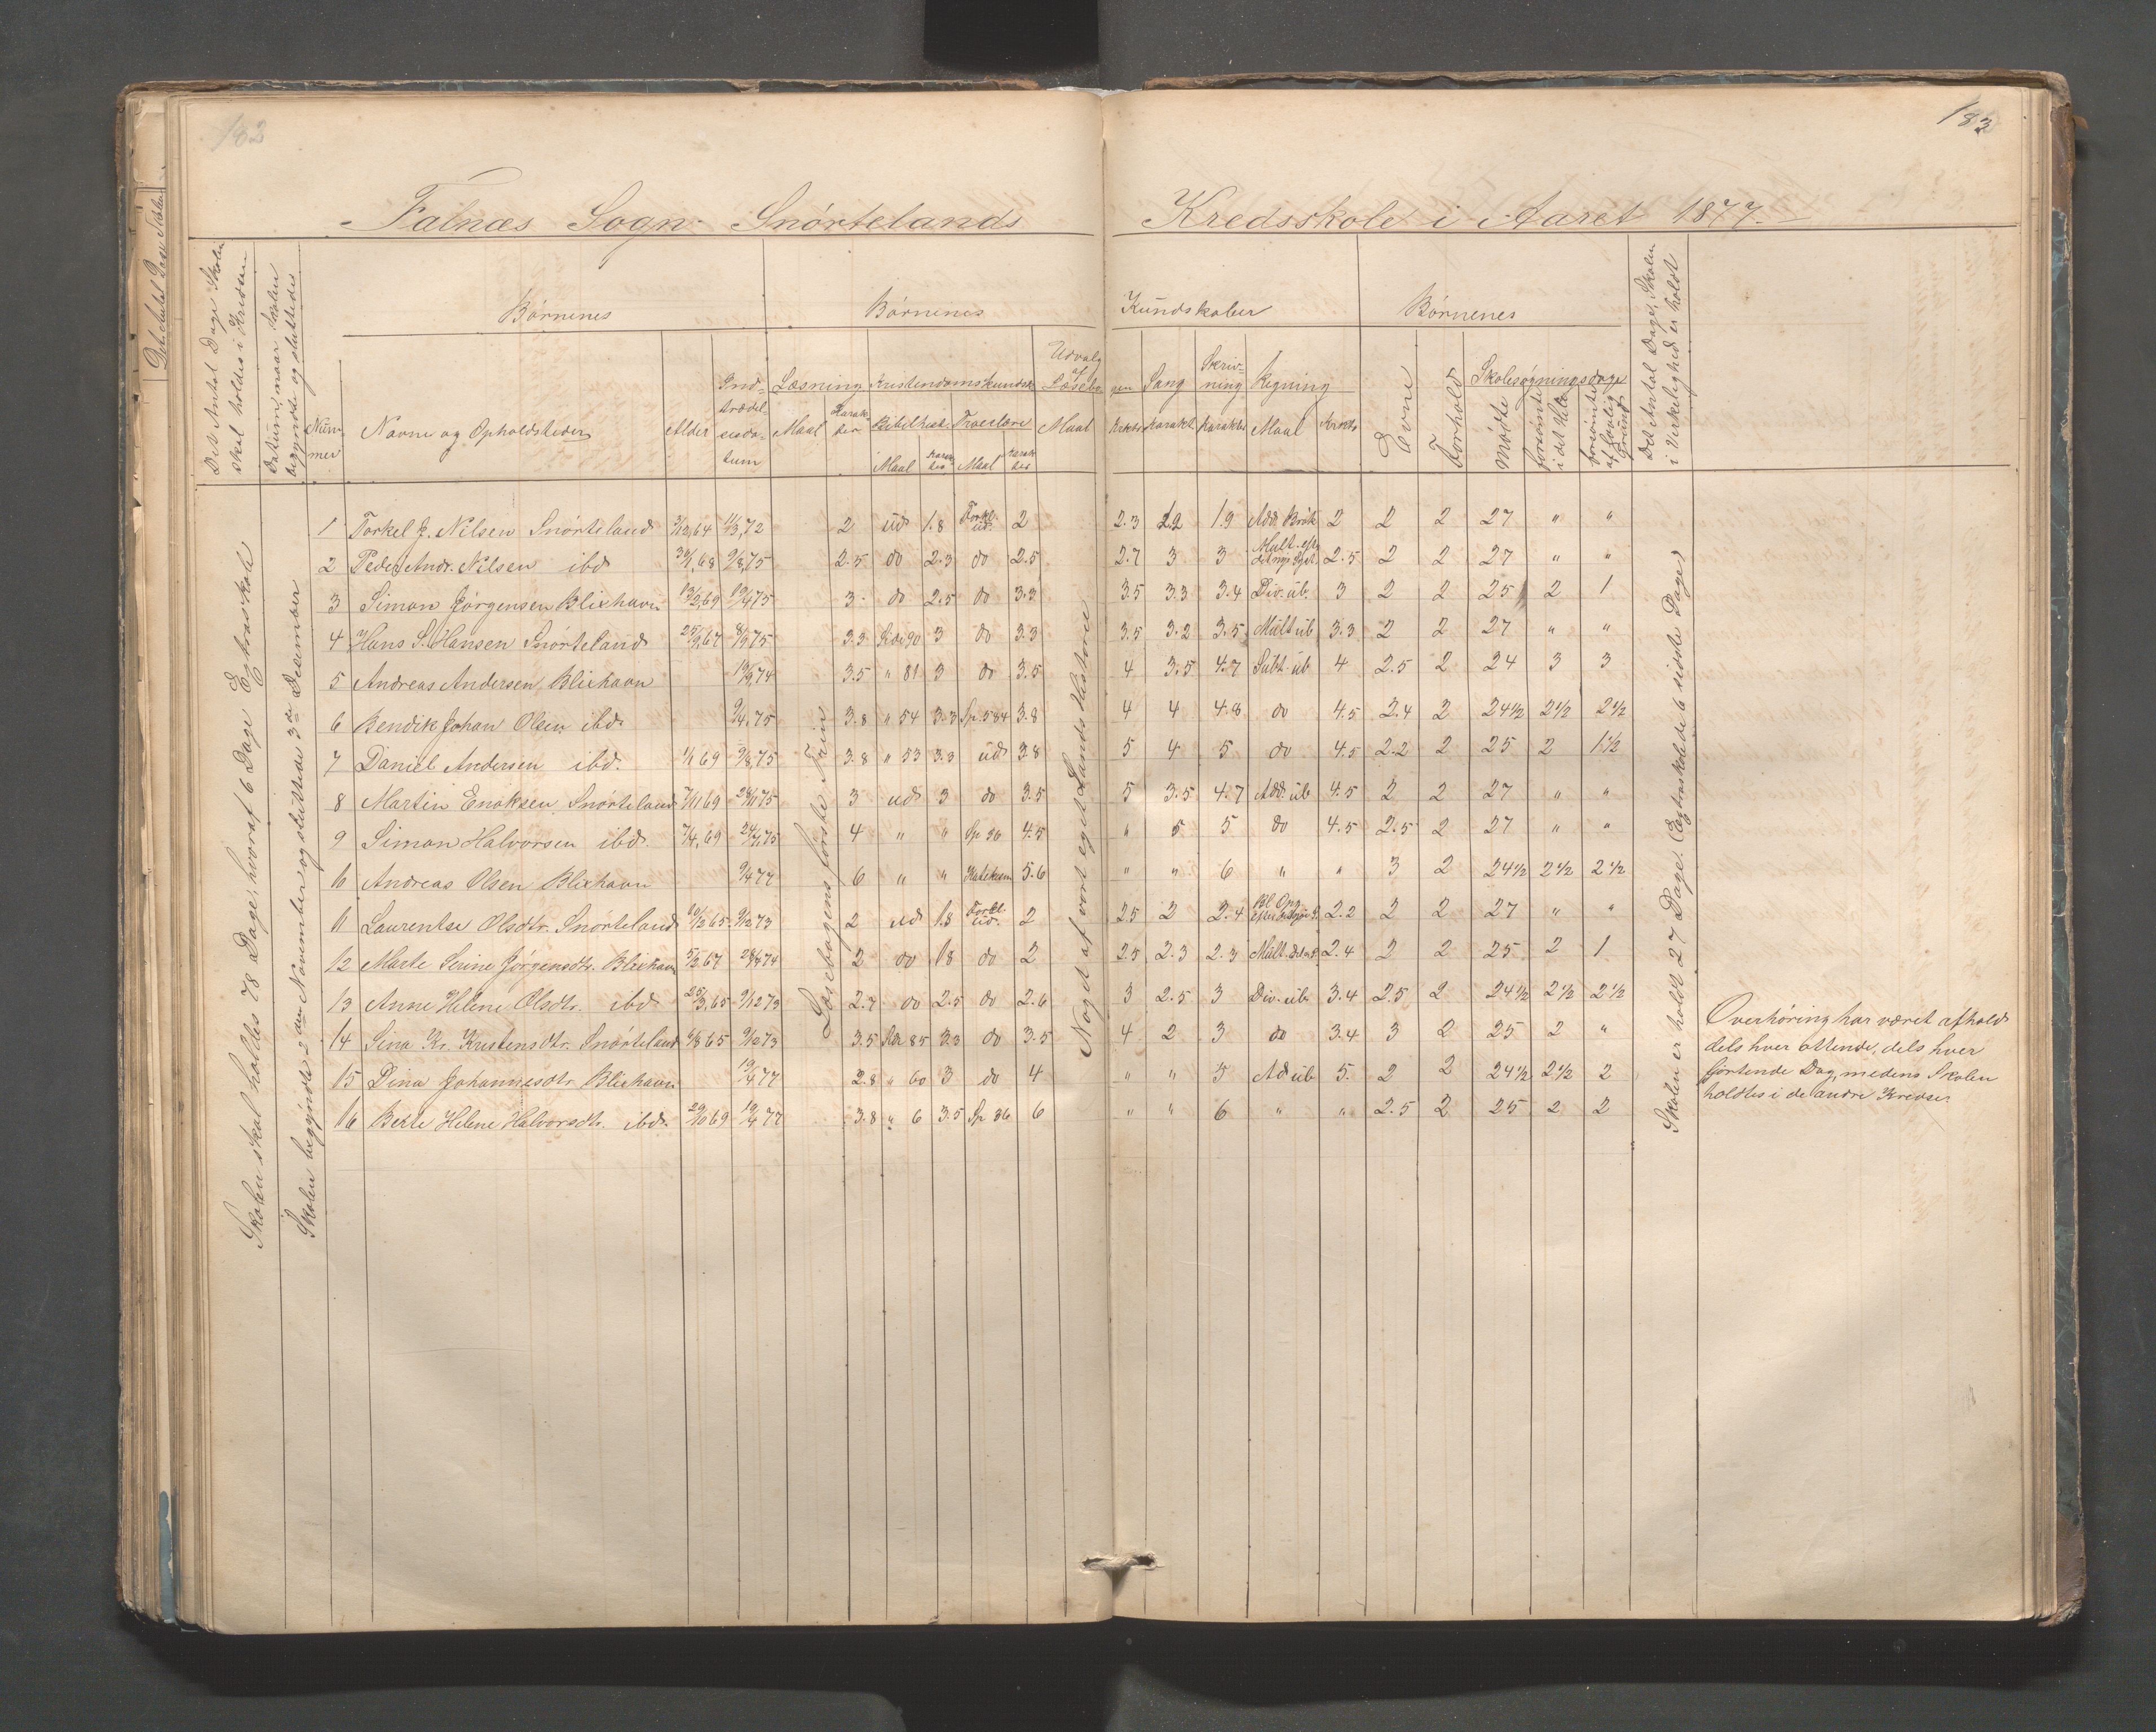 182
183
Falnæs Sogn Snørtelands Kredsskole i Aaret 1877.
Det Antal Dage Skolen skal holdes i Kredsen
Datum, naar Skolen begyndte og sluttede
Nummer
Børnenes
Navne og Opholdssteder
Alder
Indtrædelsesdatum
Børnenes Kundskaber
Læsning
Maal
Karakter
Kristendomskundsk.
Bibelhist.
Maal
Karakter
Troeslære
Maal
Karakter
Udvalg af Læsebogen
Maal
Krkt.
Sang
Karakt.
Skrivning
Karakter
Regning
Maal
Krkt.
Børnenes
Evne
Forhold
Skolesøgningsdage
mødte
forsømte i det Hele
forsømte af lovlig Grund
Det Antal Dage, Skolen i Virkelighed er holdt
Skolen skal holdes 78 Dage, hvoraf 6 Dage Extraskole
Skolen begyndte 2den November og sluttede 3die December
Læsebogens første Trin
Noget af vort eget Lands Historie
Skolen er holdt 27 Dage. (Extraskole de 6 sidste Dage)
1 Torkel J. Nilsen Snørteland 2 ud 1.8 Forkl. ud. 2 2.3 2.2 1.9 Add. Brøk 2 2 2 27 " "
2 Peder Andr. Nilsen ibd. 9/8,75 2.5 do 2.3 do 2.5 2.7 3 3 Mult. 2.5 2 2 27 " "
3 Simon Jørgensen Blixhavn 13/2,69 3 do 2.5 do 3.3 3.5 3.3 3.4 Div. üb. 3 2 2 25 2 1
4 Hans S. Hansen Snørteland 3.3 90 3 do 3.3 3.5 3.2 3.5 Mult üb 3.3 2 2 27 " "
5 Andreas Andersen, Blixhavn 3.5 " 81 3 do 3.5 4 3.5 4.7 Subt. üb 4 2.5 2 24 3 3
6 Bendik Johan Olsen ibd. 9/4,75 3.8 " 54 3.3 Sp. 584 3.8 4 4 4.8 do 4.5 2.4 2 24½ 2½ 2½
7 Daniel Andersen ibd. 1/1 69 9/8,75 3.8 " 53 3.3 ud 3.8 5 4 5 do 4.5 2.2 2 25 2 1½
8 Martin Enoksen Snørteland 7/11 69 3 ud 3 do 3.5 5 3.5 4.7 Add. üb 4.5 2 2 27 " "
9 Simon Halvorsen ibd. 7/4,69 4 " " Sp 96 4.5 " 5 5 do 4.5 2.5 2 27 " "
10 Andreas Olsen Blixhavn 9/4 77 6 " " Katekism 5.6 " " 6 " " 3 2 24½ 2½ 2½
11 Laurentse Olsdtr. Snørteland 9/12 73 2 ud 1.8 Forkl. ud. 2 2.5 2 2.4 2.2 2 2 27 " "
12 Marte Serine Jørgensdtr. Blixhavn 2 do 1.8 do 2 2.5 2.3 2.3 Mult. 2.4 2 2 25 2 1
13 Anne Helene Olsdtr. ibd 25/3,65 9/12 73 2.7 do 2.5 do 2.6 3 2.5 3 Div. üb. 3.4 2.5 2 24½ 2½ 2½
14 Sina Kr. Kristensdtr. Snørteland 9/12 73 3.5 85 3.3 do 3.5 4 2 3 do 3.4 3 2 25 2 "
15 Dina Johannesdtr. Blixhavn 19/4 77 2.8 " 60 3 do 4 " " 5 Ad üb 5. 2 2 24½ 2½ 2
16 Berte Helene Halvorsdtr. ibd. 29/10 69 19/4 77 3.8 " 6 3.5 Sp 36 6 " " 6 " " 2.5 2 25 2 2
Overhøring har været afholdt
dels hver ottende, dels hver
fjortende Dag, medens Skolen
holdtes i de andre Kredse.